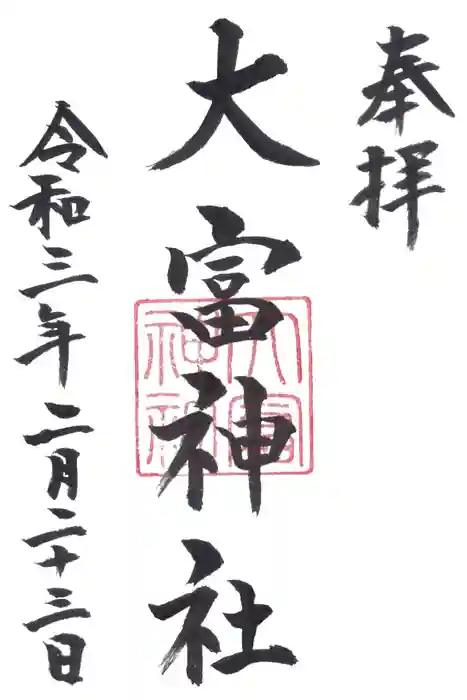 奉拝
大富神社
令和三年二月二十三日